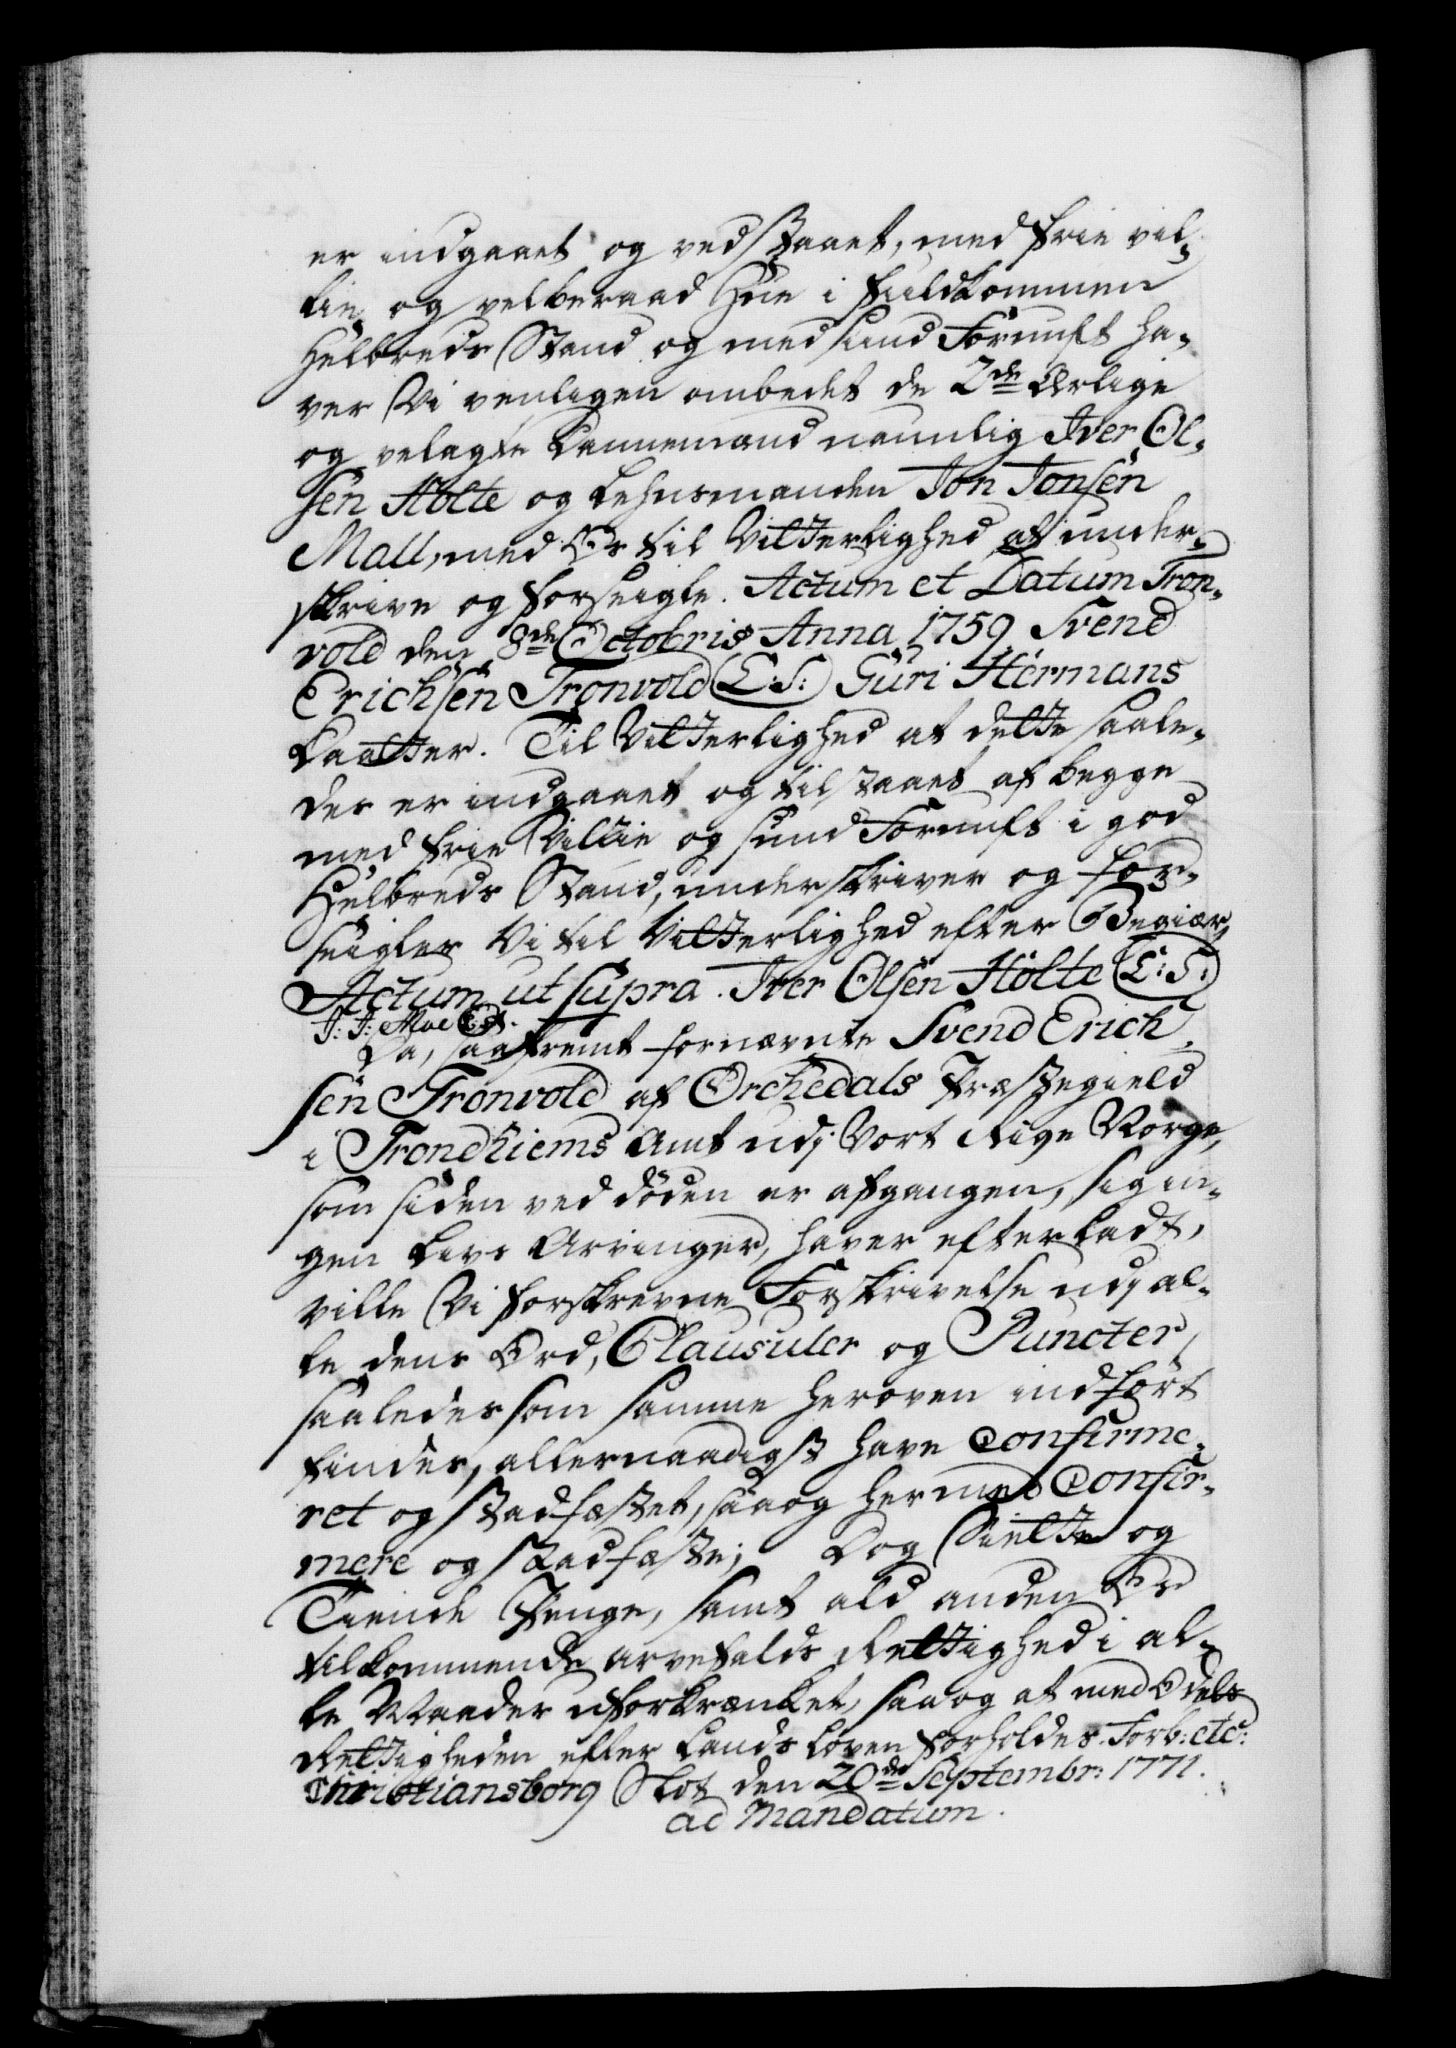 er indgaaet og vedstaaet, med frie vil-
lie og velberaad Hue i fuldkommen
Helbreds Stand og med sund Fornuft ha-
ver Vi venligen ombedet de 2de Ærlige
og velagte Dannemænd naunlig Iver Ol-
sen Holte og Lehnsmanden Jon Jonsen
Mall, med Os til Vitterlighed at under-
skrive og forseigle. Actum et Datum Tron-
vold den 8de Octobris Anna 1759 Svend
Erichsen Tronvold (L:S:) Guri Hermans
Daatter. Til Vitterlighed at dette saale-
des er indgaaet og tilstaaet af begge
med frie Villie og sund Fornuft i god
Helbreds Stand, underskriver og for-
seigler Vi til Vitterlighed efter Begiær,
Actum ut supra. Iver Olsen Holte (L:S:)
J: J: Moe (L:S:).
Da, saafremt fornævnte Svend Erich-
sen Tronvold af Orchedals Præstegield
i Trondhiems Amt udj Vort Rige Norge,
som siden ved døden er afgangen, sig in-
gen Livs Arvinger, haver efterladt,
ville Vi forskrevne Forskrivelse udj al-
le dens Ord, Clausuler og Puncter,
saaledes som samme heroven indført
findes, allernaadigst have confirme-
ret og stadfæstet, saa og hermed confir-
mere og stadfæste; Dog Siette og
Tiende Penge, samt ald anden Os
tilkommende arvefalds Rettighed i al-
le Maader uforkrænket, saa og at med Odels
Rettigheden efter Lands Loven forholdes. Forb: etc:
Christiansborg Slot den 20de Septembr: 1771.
ad Mandatum.